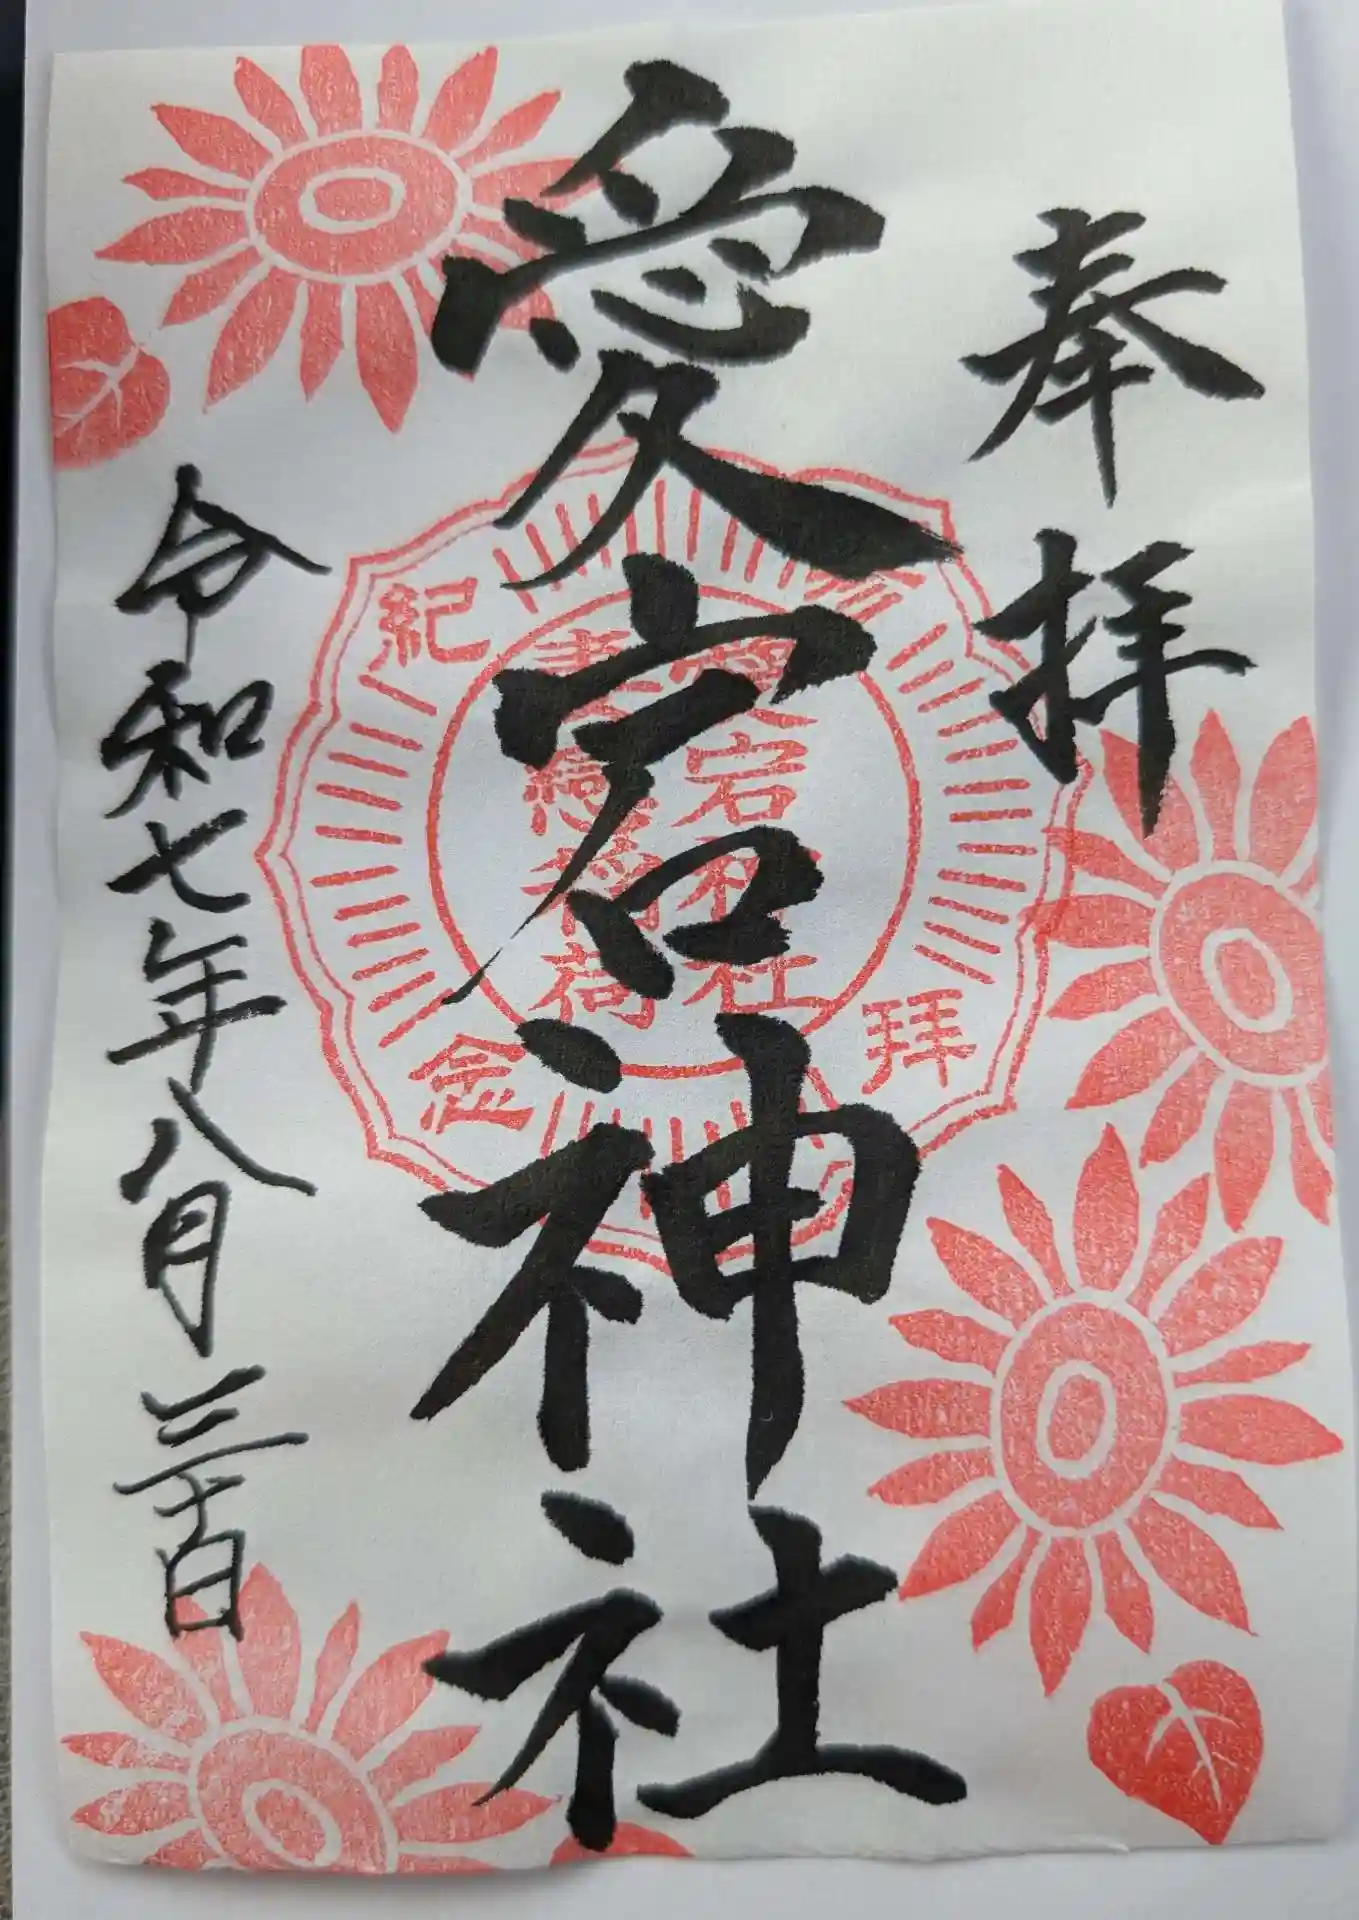 奉拝
愛宕神社
令和七年八月三十日
愛宕神社
稲荷
拜
紀念